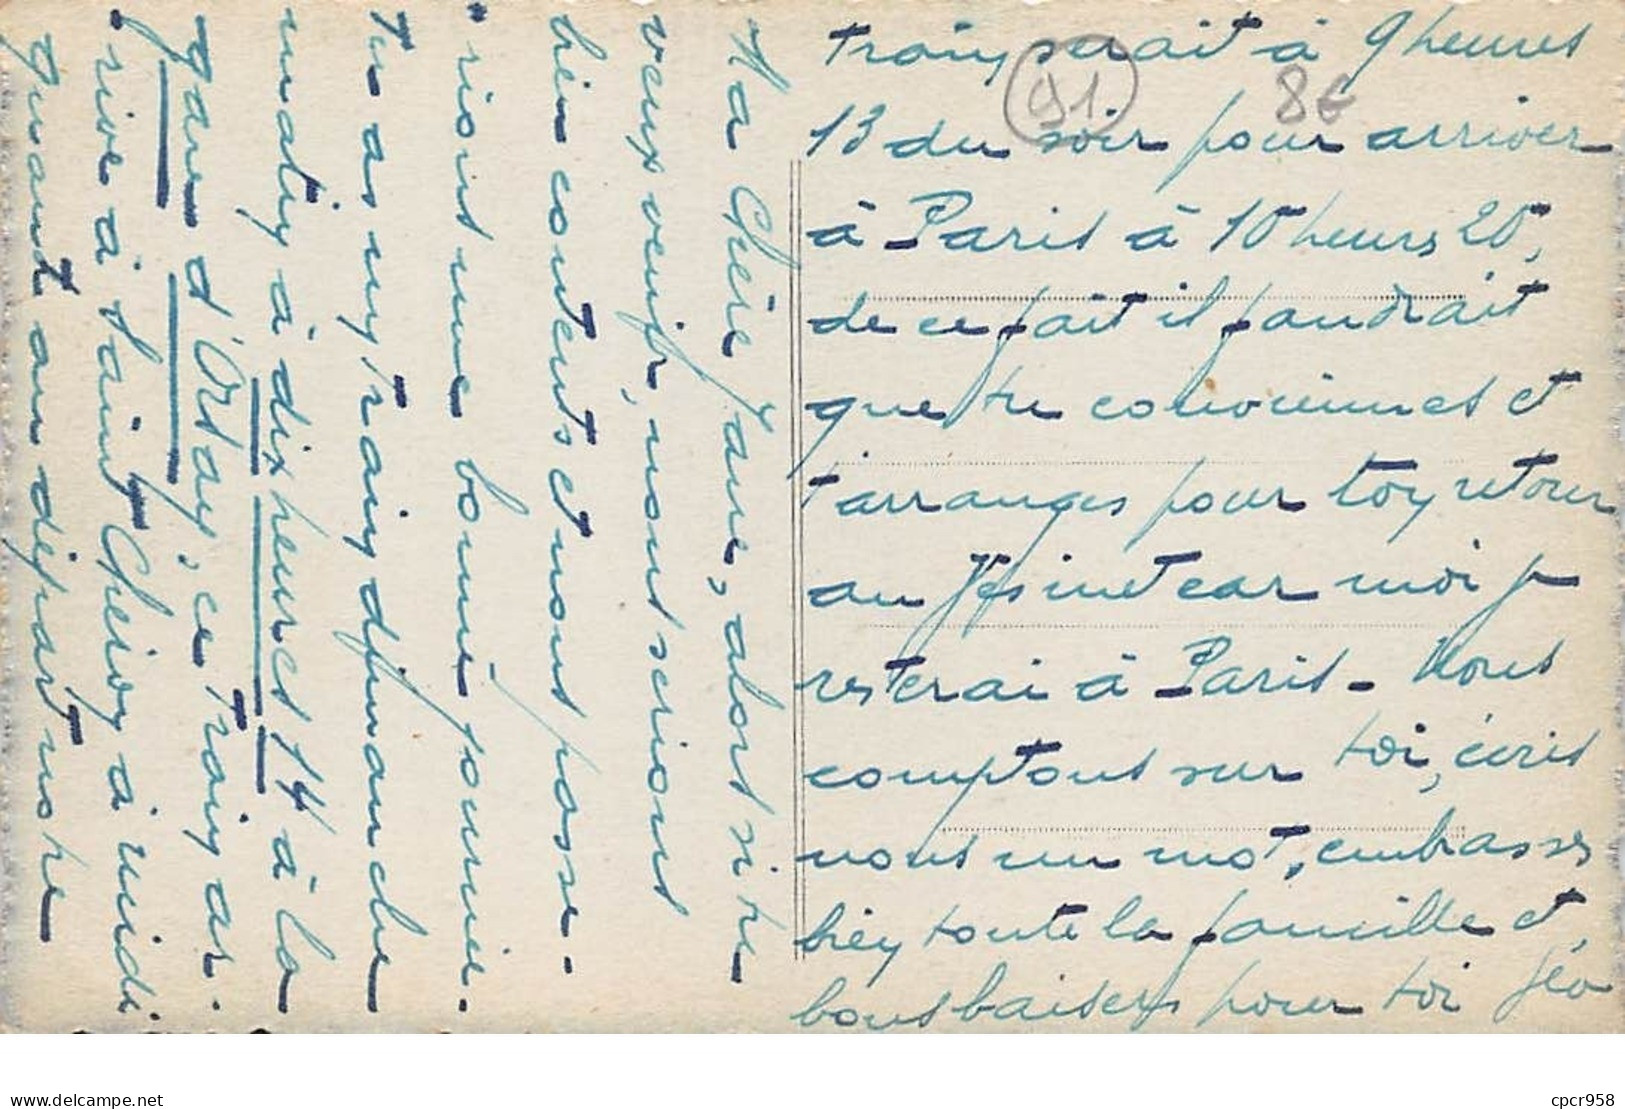 Ma Chère Jane, alors si tu
veux venir, nous serions
bien contents et nous passe-
rions une bonne journée.
Tu as un train dimanche
matin à dix heures 14 à la
gare d'Orsay, ce train ar-
rive à Saint Chéron à midi
quant au départ notre
train serait à 9 heures
13 du soir pour arriver
à Paris à 10 heures 20,
de ce fait il faudrait
que tu conviennes et
t'arranges pour ton retour
au car moi je
resterai à Paris - Nous
comptons sur toi, écris
nous un mot, embrasses
bien toute la famille et
bons baisers pour toi Géo
91
8€
cpcr958